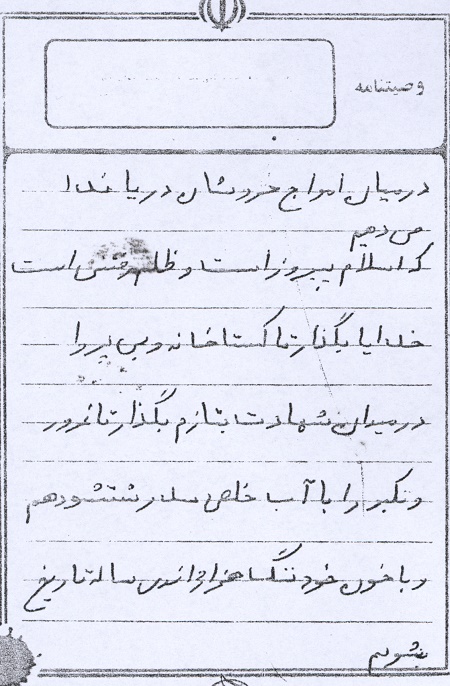 وصیتنامه
در میان امواج خروشان دریا ندا
می دهیم
که اسلام پیروز است و ظلم رفتنی است
خدایا بگذار تا گستاخانه و بی پروا
در میدان شهادت بتازم بگذار تا غرور
و تکبر را با آب خلص شستشو دهم
و با خون خود ننگ هزار و اندی ساله تاریخ
بشویم